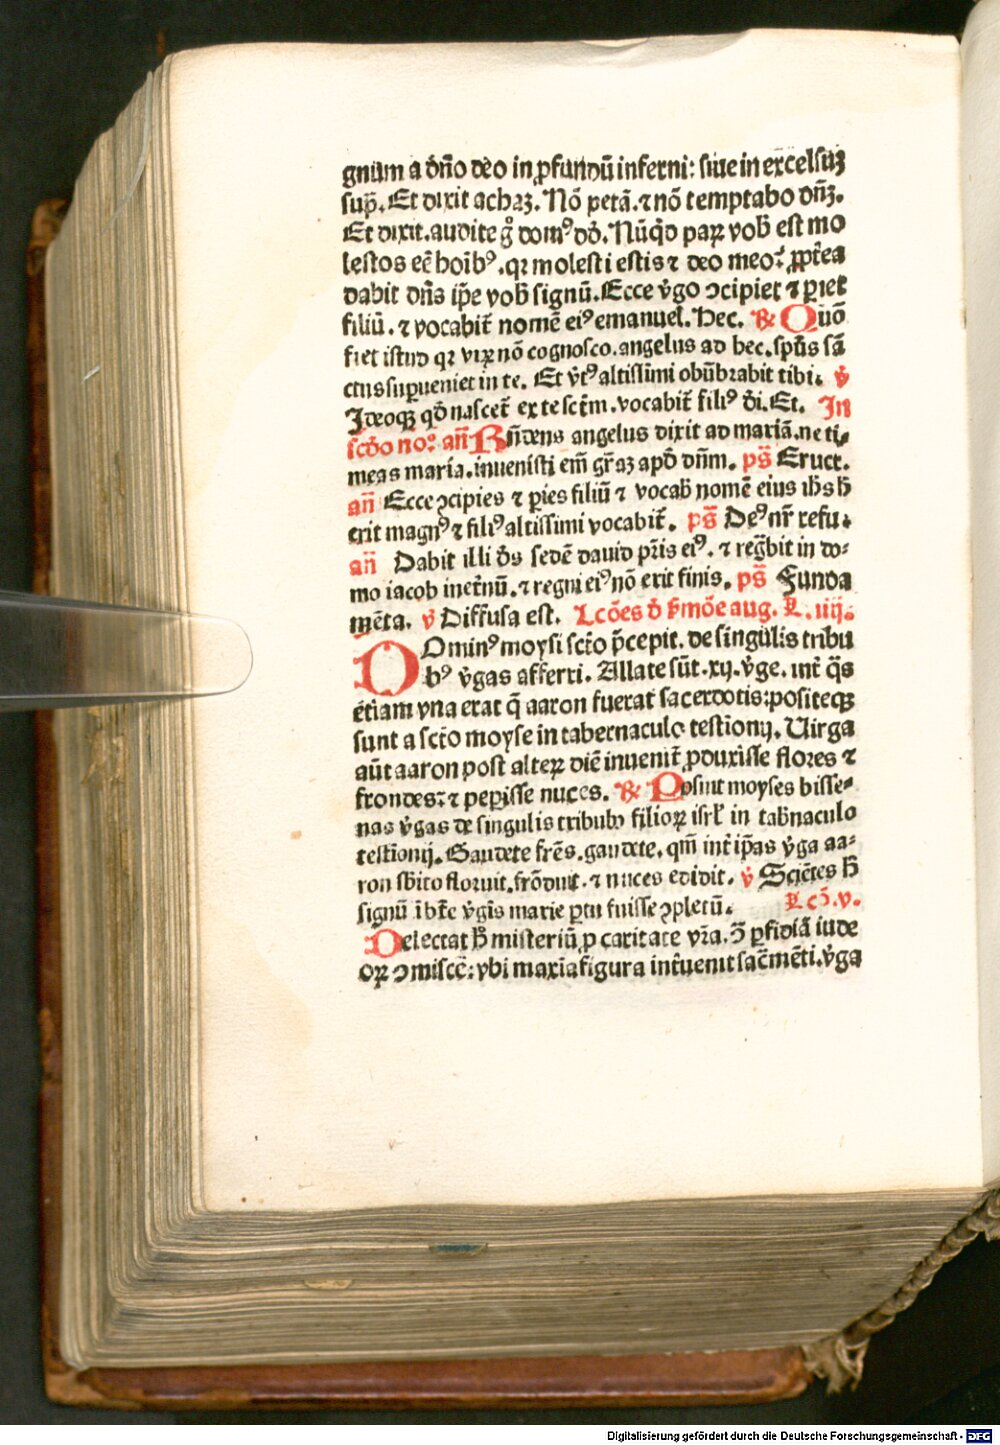 gnum a dño deo in ꝓfundū inferni: siue in excelsuꝫ
sup̄. Et dixit achaz. Nō petā. ⁊ nō temptabo dñꝫ.
Et dixit. audite g̊ domꝰ dđ. Nūqđ paꝝ vob̄ est mo
lestos eē hoīb̄ꝰ. qꝛ molesti estis ⁊ deo meo: ꝓpt̄ea
dabit dñs ip̄e vob̄ signū. Ecce v̄go ↄcipiet ⁊ p̄iet
filiū. ⁊ vocabit̄ nomē eiꝰ emanuel. Hec. ℟ Quō
fiet istud qꝛ viꝝ nō cognosco. angelus ad hec. spūs sā
ctus suꝑueniet in te. Et v̄tꝰ altissimi obūbrabit tibi. ℣
Ideoqꝫ qđ nascet̄ ex te sctm̄. vocabit̄ filiꝰ đi. Et. In
scđo noꝰ. añ Rñdens angelus dixit ad mariā. ne ti⸗
meas maria. inuenisti em̄ gr̄aꝫ apđ dñm. ps̄ Eruct.
añ Ecce ↄcipies ⁊ ꝑies filiū ⁊ vocab̄ nomē eius ih̄s h̄
erit magnꝰ ⁊ filiꝰ altissimi vocabit̄. ps̄ Deꝰ nr̄ refu.
añ Dabit illi đs sedē dauid pr̄is eiꝰ. ⁊ regb̄it in do⸗
mo iacob inet̄nū. ⁊ regni eiꝰ nō erit finis. ps̄ Funda
mēta. ℣ Diffusa est. Lcōes đ s̄mōe aug. L. iiij.
Dominꝰ moysi scto p̄cepit. de singulis tribu
bꝰ v̄gas afferri. Allate sūt. xij. v̄ge. int̄ q̄s
etiam vna erat q̄ aaron fuerat sacerdotis: positeqꝫ
sunt a scto moyse in tabernaculo testionij. Uirga
aūt aaron post alteꝝ diē inuenit̄ ꝓduxisse flores ⁊
frondes: ⁊ peꝑisse nuces. ℟ Posuit moyses bisse⸗
nas v̄gas de singulis tribubꝰ filioꝝ isrl̄ in tab̄naculo
testionij. Gaudete fr̄es. gaudete. qm̄ int̄ ip̄as v̄ga aa⸗
ron sb̄ito floruit. frōduit. ⁊ nuces edidit. ℣ Sciētes h̄
signū ib̄te v̄gis marie ꝑtu fuisse ↄpletū. L cō. v.
Delectat h̄ misteriū ꝓ caritate vr̄a. Ↄ ꝑfidiā iude
oꝝ ↄmiscē: vbi maxīa figura int̄uenit sac̄mēti. v̄ga
Digitalisierung gefördert durch die Deutsche Forschungsgemeinschaft - DFG